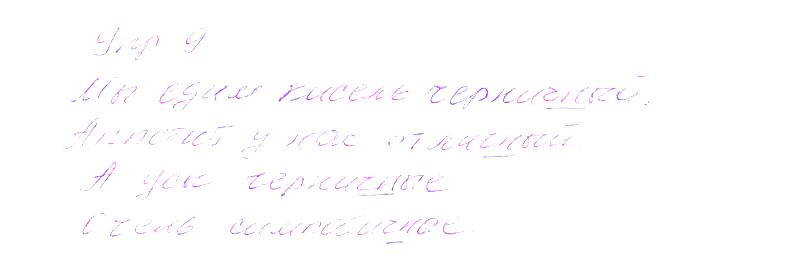 Упр 9
Мы едим кисель черничный.
Аппетит у нас отличный.
А усы черничные
Очень симпатичное.